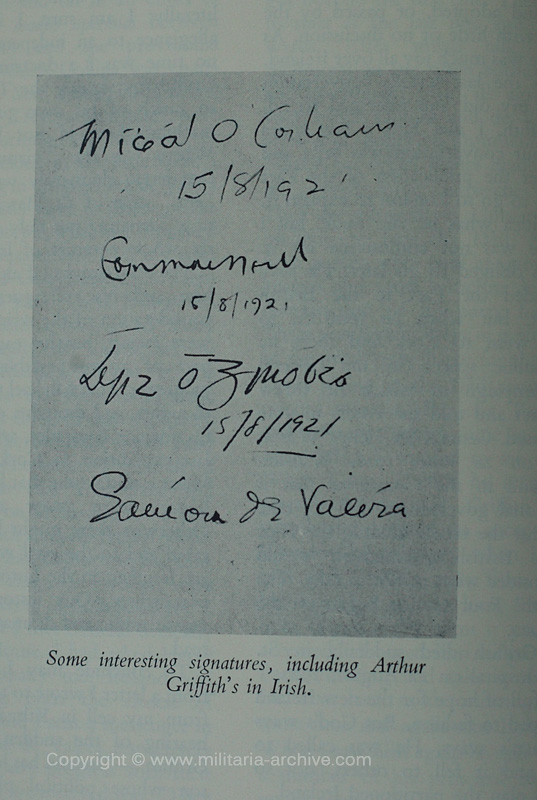 Micéál Ó Coileáin
15/8/1921
15/8/1921
Art Ó Gríobhtha
15/8/1921
Éamon de Valéra
Some interesting signatures, including Arthur
Griffith's in Irish.
Copyright © www.militaria-archive.com